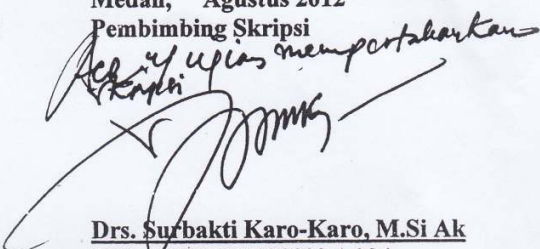 Medan, Agustus 2012
Pembimbing Skripsi
Acc u/ ujian mempertahankan
skripsi
Drs. Surbakti Karo-Karo, M.Si Ak